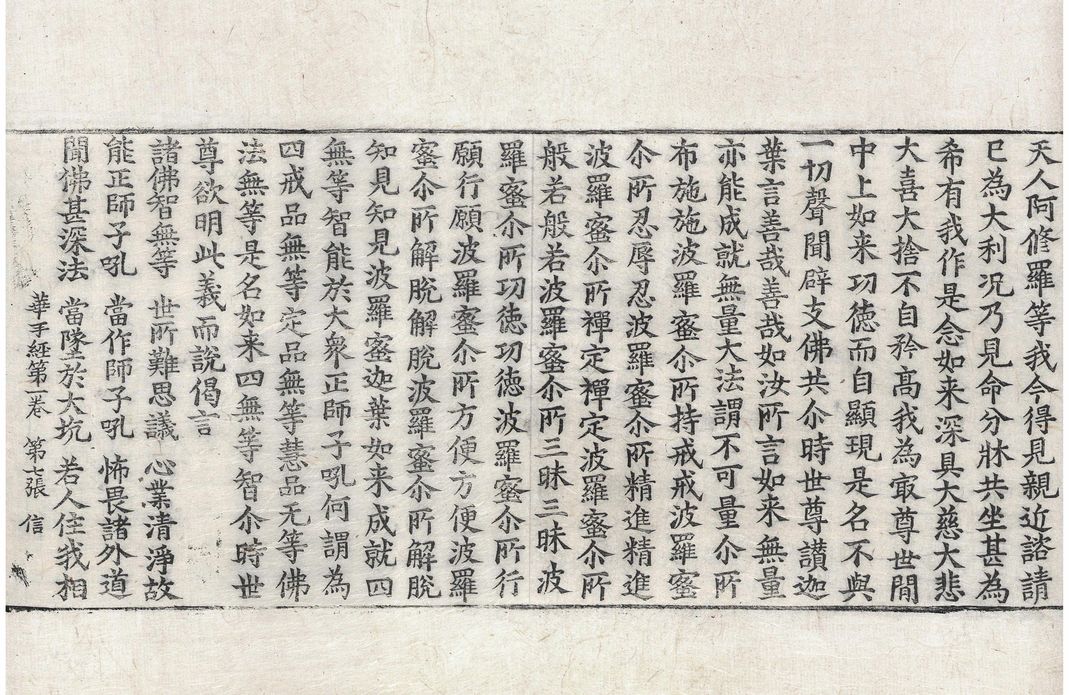 天人阿修羅等我今得見親近諮請
已為大利况乃見命分牀共坐甚為
希有我作是念如来深具大慈大悲
大喜大捨不自矜髙我為㝡尊世間
中上如来功徳而自顯現是名不與
一切聲聞辟支佛共尒時世尊讃迦
葉言善哉善哉如汝所言如来無量
亦能成就無量大法謂不可量尒所
布施施波羅蜜尒所持戒戒波羅蜜
尒所忍辱忍波羅蜜尒所精進精進
波羅蜜尒所禪定禪定波羅蜜尒所
般若般若波羅蜜尒所三昧三昧波
羅蜜尒所功徳功徳波羅蜜尒所行
願行願波羅蜜尒所方便方便波羅
蜜尒所解脫解脫波羅蜜尒所解脫
知見知見波羅蜜迦葉如来成就四
無等智能於大衆正師子吼何謂為
四戒品無等定品無等慧品无等佛
法無等是名如来四無等智尒時世
尊欲明此義而說偈言
諸佛智無等 世所難思議 心業清淨故
能正師子吼 當作師子吼 怖畏諸外道
聞佛甚深法 當墜於大坑 若人住我相
華手經第二卷 第七張 信